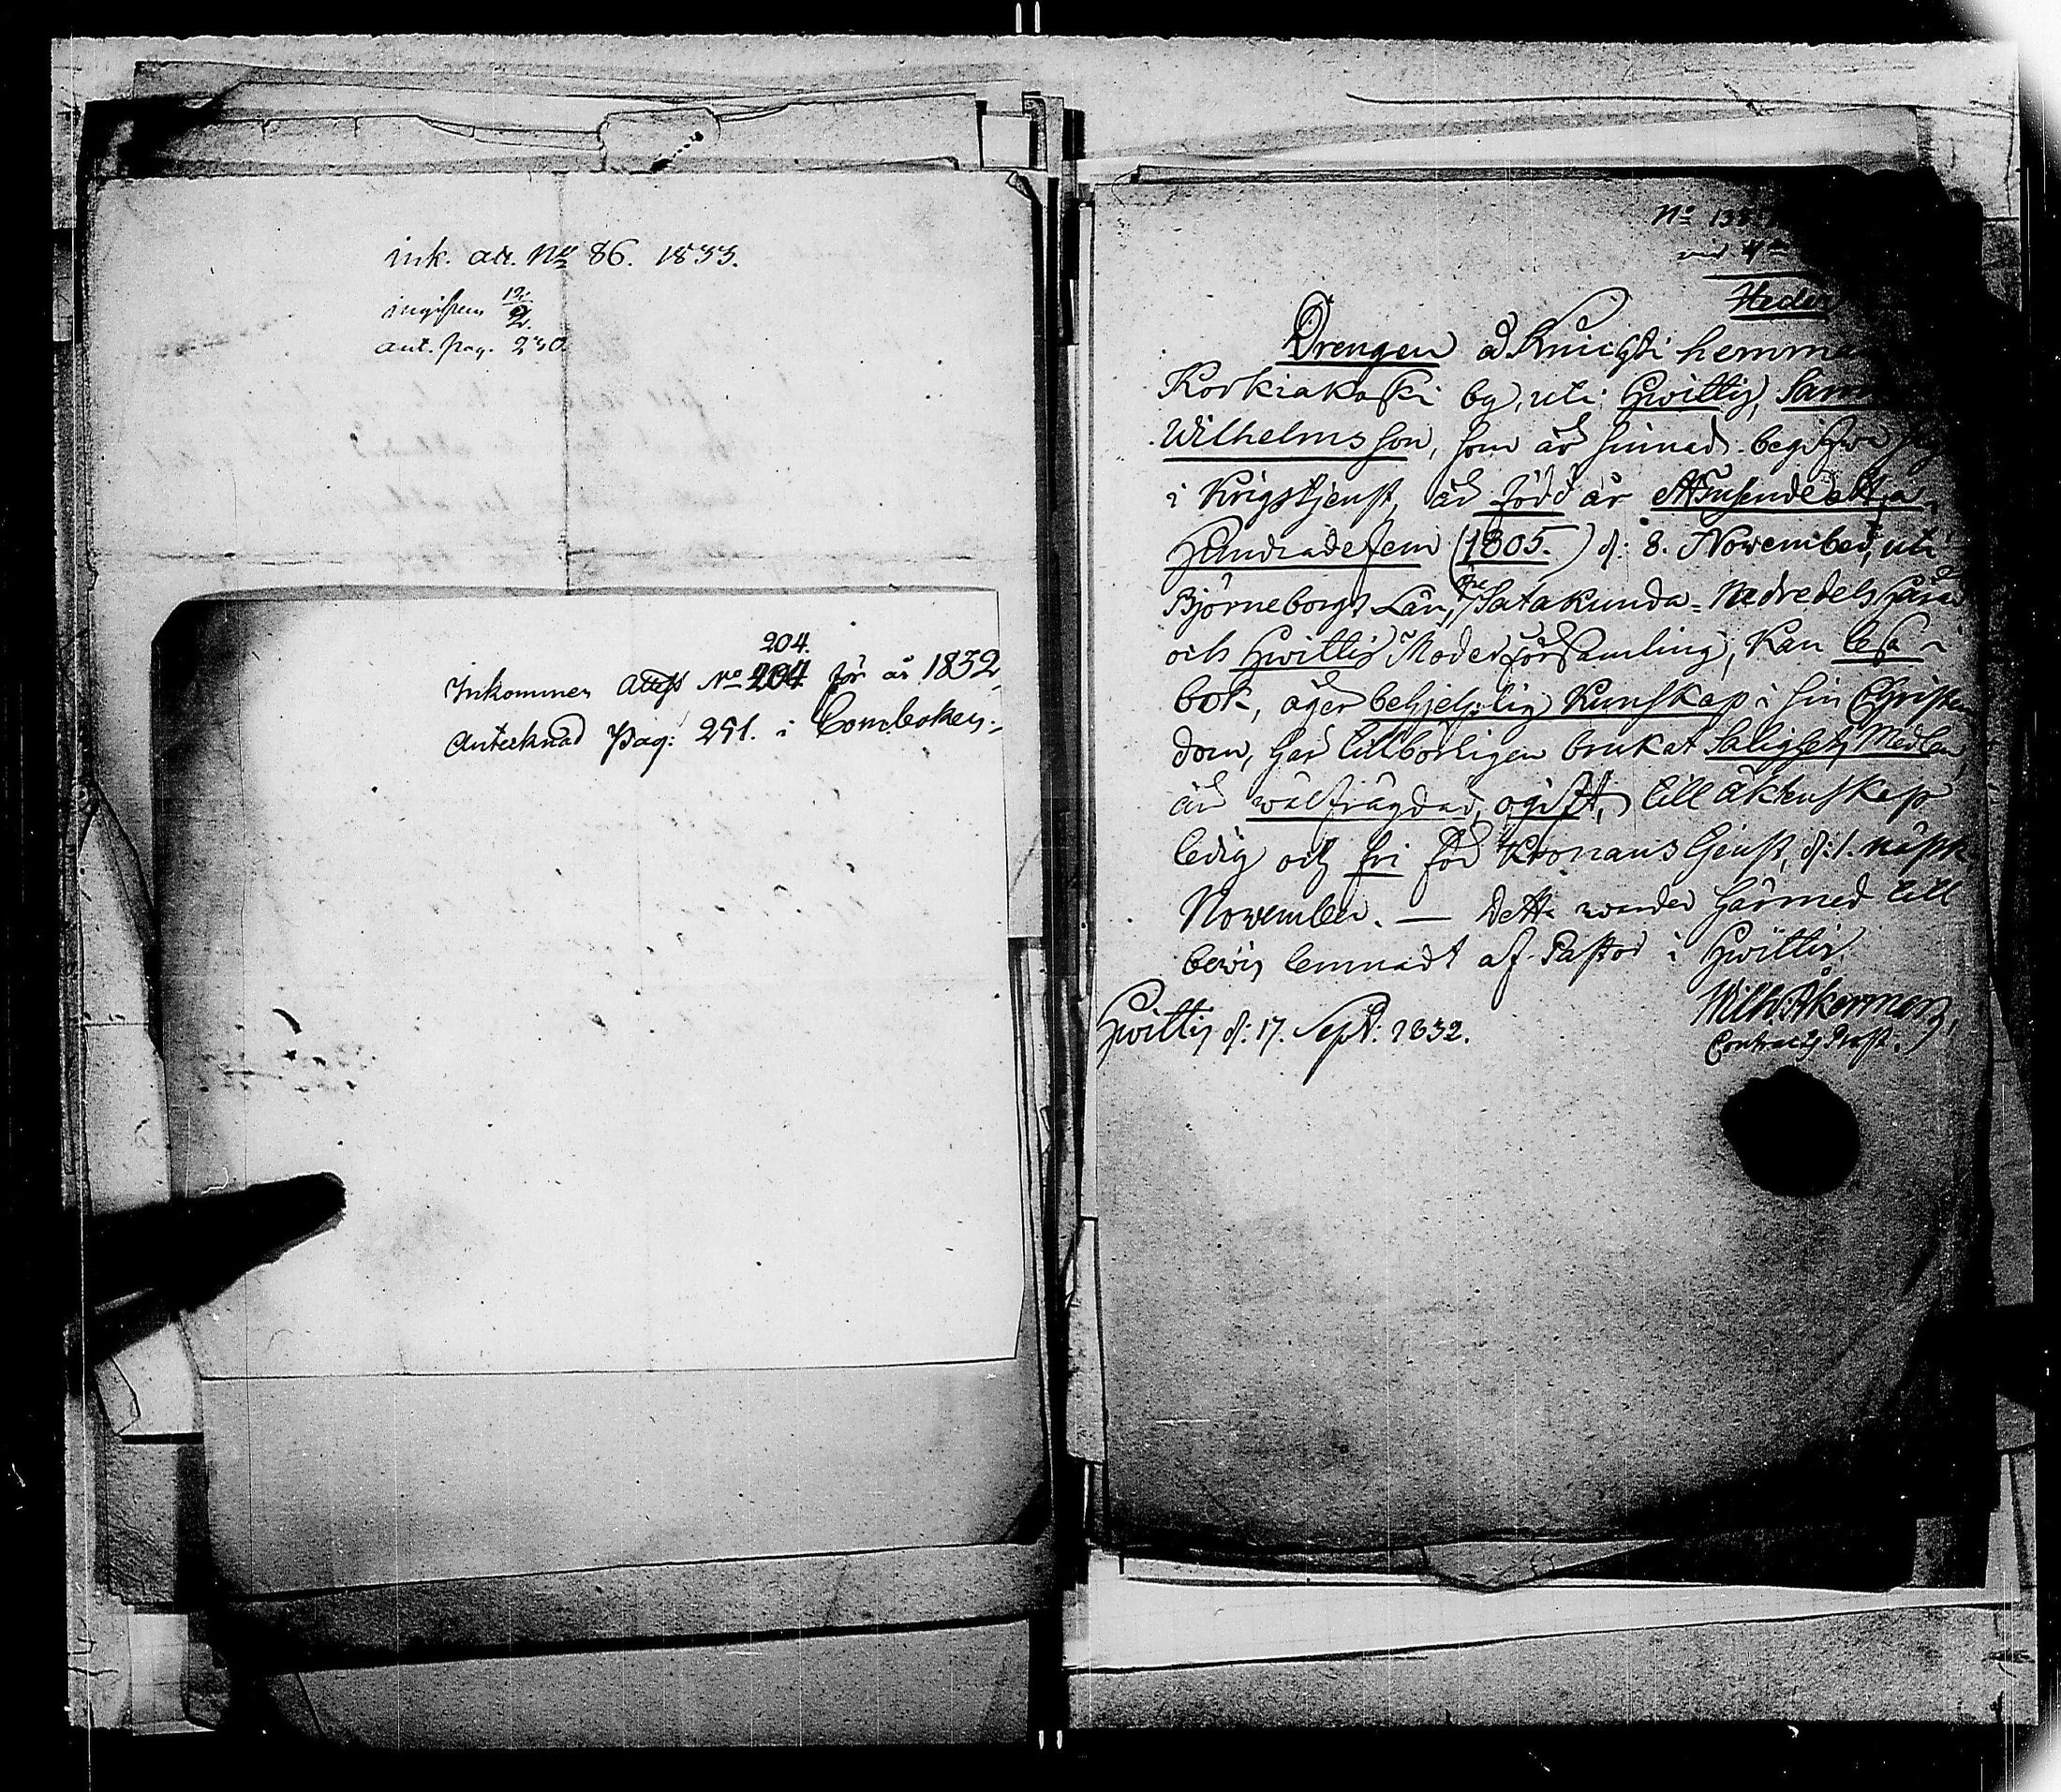 ink. att. No 86. 1833.
ingifven 12/2
ant. pag. 230.
204.
Inkommen Attest No 204 för år 1832,
Anteknad Pag: 291. i Com.boken.
No 135
Drengen å hemma
Korkiakoski by, uti Hwittis, Sam
Wilhelmsson, som är sinnad begifwa sig
i Krigstjenst, är född år Ettusendeåtta
Hundradefem (1805.) d: 8. November, uti
Björneborgs Län, Satakunda Nedredels Härad
och Hwittis Moderförsamling, kan läsa i
bok, äger behjelplig Kunskap i sin Christen
dom, har tillbörligen brukat Salighets Medlen,
är wälfrägdad, ogift, till äktenskap
ledig och fri för Kronans tjenst, d: 1. näst k.
November. — Detta warder härmed till
bewis lemnadt af Pastor i Hwittis.
Hwittis d: 17. Sept: 1832.
Wilh: Åkerman,
Contracts Prost.